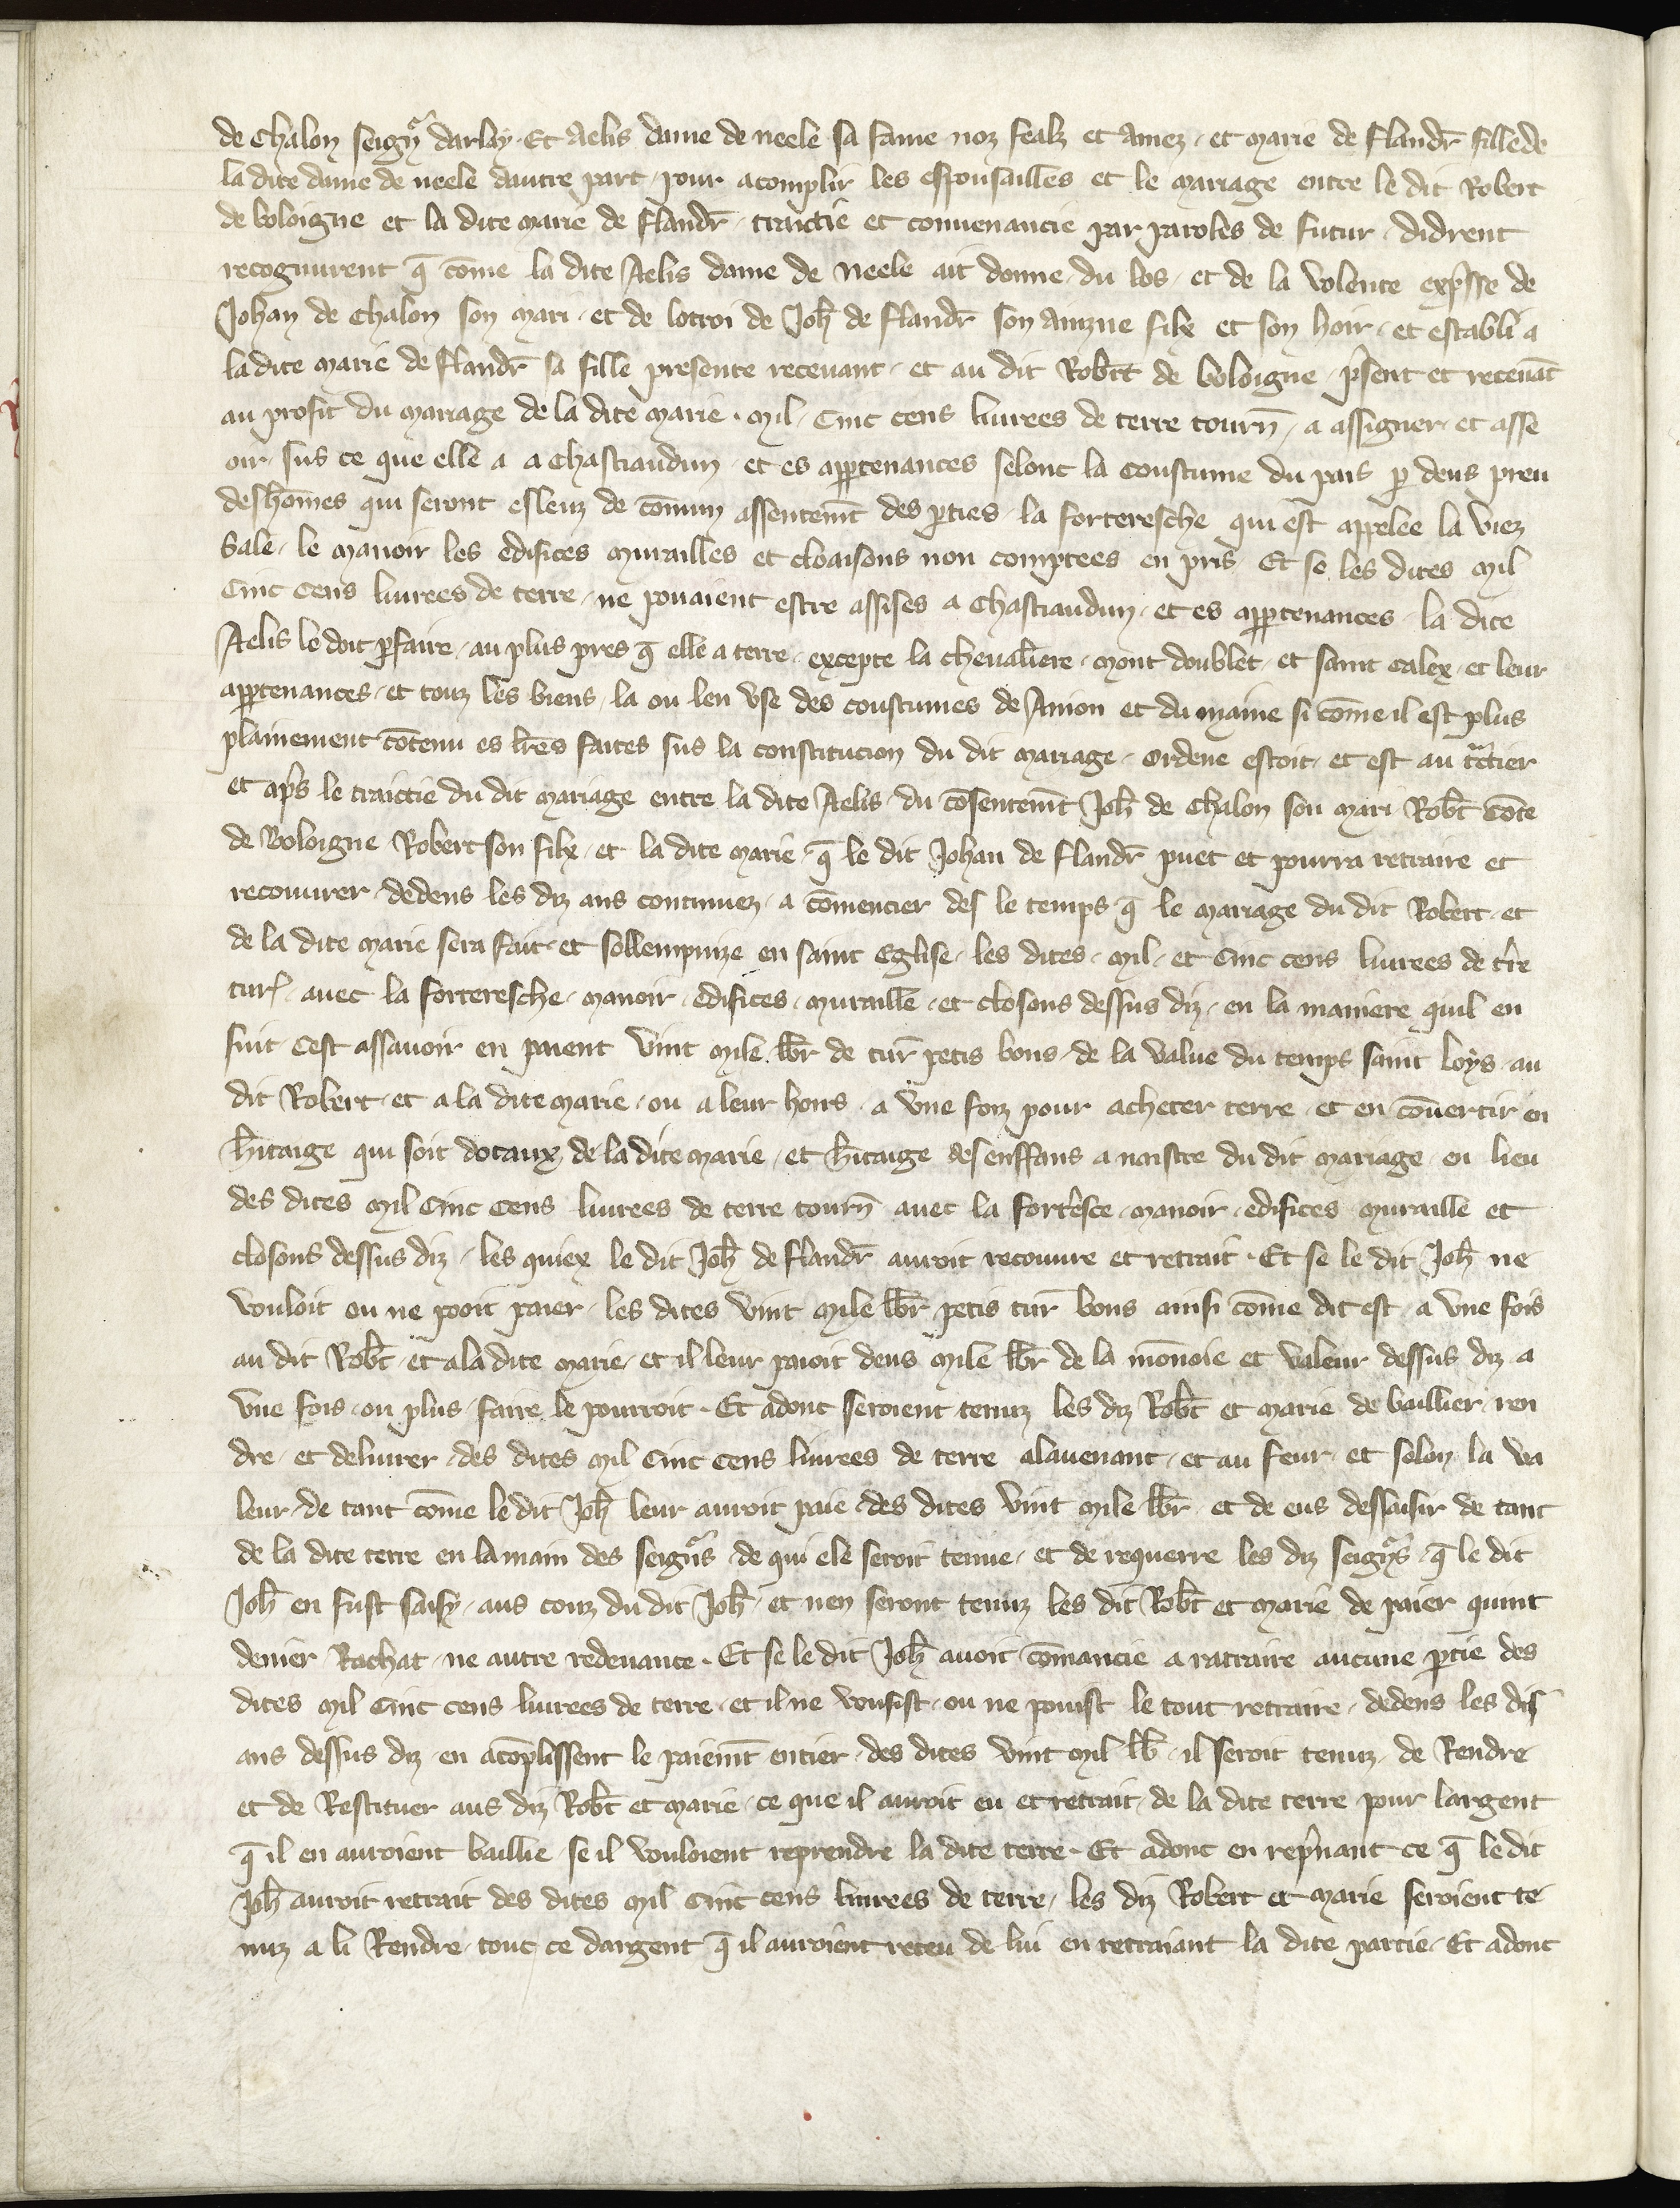 de Chalon seigneʳ darlay. Et Aelis dame de neele sa fame noz fealz et amez, et marie de flandr̄ fille de
la dite dame de neele dautre part, pour acomplir les espousailles et le mariage entre le dit Robert
de boloigne et la dite marie de flandr̄, traictie et conuenancie par paroles de futur, didrent
recognurent q̄ cōme la dite Aelis dame de Neele ait donne, du los, et de la volente exp̄sse de
Johan de Chalon son mari, et de lotroi de Joh̄ de flandr̄ son ainzne filx et son hoir, et establi a
la dite marie de flandr̄ sa fille presente receuant, et au dit Rob̄t de boloigne, p̄sent et receuāt
au profit du mariage de la dite marie. mil, Cinc cens liurees de terre tourn̄, a assigner, et asse
oir, sus ce que elle a a Chastiaudun, et es appartenances selonc la coustume du pais p̱ deus preu
deshōmes qui seront esleuz de cōmun assentemīt des p̱ties, la forteresche qui est appelee la viez
Sale, le manoir les edifices murailles et cloaisons non comptees en pris. Et se les dites mil
Cinc cens liurees de terre, ne pouaient estre assises a Chastiaudun, et es app̱tenances, la dite
Aelis le doit p̱faire, au plus pres q̄ elle a terre, excepte la Cheualiere, mont doublet, et saint Calex, et leur
app̱tenances, et touz les biens, la ou len vse des coustumes de Aniou et du maine si cōme il est plus
plainement cōtenu es lr̄es faites sus la constitucion du dit mariage, ordene estoit, et est au tᵃctier
et ap̄s le traictie du dit mariage entre la dite Aelis, du cōsentemīt Joh̄ de Chalon son mari Rob̄t cōte
de Boloigne Robert son filx, et la dite marie, q̄ le dit Johan de flandr̄ puet et pourra retraire et
recouurer, dedens les diz ans continuez, a cōmencier des le temps q̄ le mariage du dit Robert, et
de la dite marie sera fait, et sollempnize en saint Eglise, les dites, mil, et Cinc cens liurees de t̄re
tur̄, auec la forteresche, manoir, edifices, muraille, et closons dessus diz, en la maniere quil en
suit, Cest assauoir en paient vint mile lb̄r de tur̄ petis bons, de la value du temps saint Loÿs, au
dit Robert, et a la dite marie, ou a leur hoirs, a vne foiz pour acheter terre, et en cōuertir en
h̄itaige qui soit dotaux de la dite marie, et h̄itaige des enffans a naistre du dit mariage, en lieu
des dites mil Cinc Cens liurees de terre tourn̄ auec la fort̄esce, manoir, edifices muraille et
closons dessus diz, les quiex le dit Joh̄ de flandr̄ auroit recouure et retrait. Et se le dit Joh̄ ne
vouloit ou ne pooit paier, les dites vint mile lb̄r petis tur̄ bons ainsi cōme dit est, a vne fois
au dit Rob̄t, et a la dite marie, et il leur paioit deus mile lb̄r de la mōnoie et valeur dessus diz, a
vne fois, ou plus, faire le pourroit. Et adont seroient tenuz les diz Rob̄t et marie de baillier, ren
dre, et deliurer, des dites mil Cinc cens liurees de terre alauenant, et au feur, et selon la va
leur, de tant cōme le dit Joh̄ leur auroit paie, des dites vint mile lb̄r, et de eus dessaisir de tant
de la dite terre en la main des seign̄rs, de qui ele seroit tenue, et de requerre les diz seign̄rs, q̄ le dit
Joh̄ en fust saisy, aus couz du dit Joh̄, et nen seront tenuz les dit Rob̄t et marie de paier quint
denier Rachat, ne autre redeuance. Et se le dit Joh̄ auoit cōmancie a ratraire aucune p̱tie des
dites mil Cinc cens liurees de terre, et il ne vousist, ou ne pouist le tout retraire, dedens les dis
ans dessus diz en acōplissent le paiemīt entier, des dites vint mil lb̄, il seroit tenuz, de Rendre
et de Restituer aus diz Rob̄t et marie, ce que il auroit eu et retrait, de la dite terre pour largent
q̄ il en auroient baillie se il vouloient reprendre la dite terre. Et adonc en rep̄nant ce q̄ le dit
Joh̄ auroit retrait des dites mil Cinc cens liurees de terre, les diz Robert et marie seroient te
nuz a li Rendre, tout ce dargent q̄ il auroient receu de lui en retraiant la dite partie, Et adonc